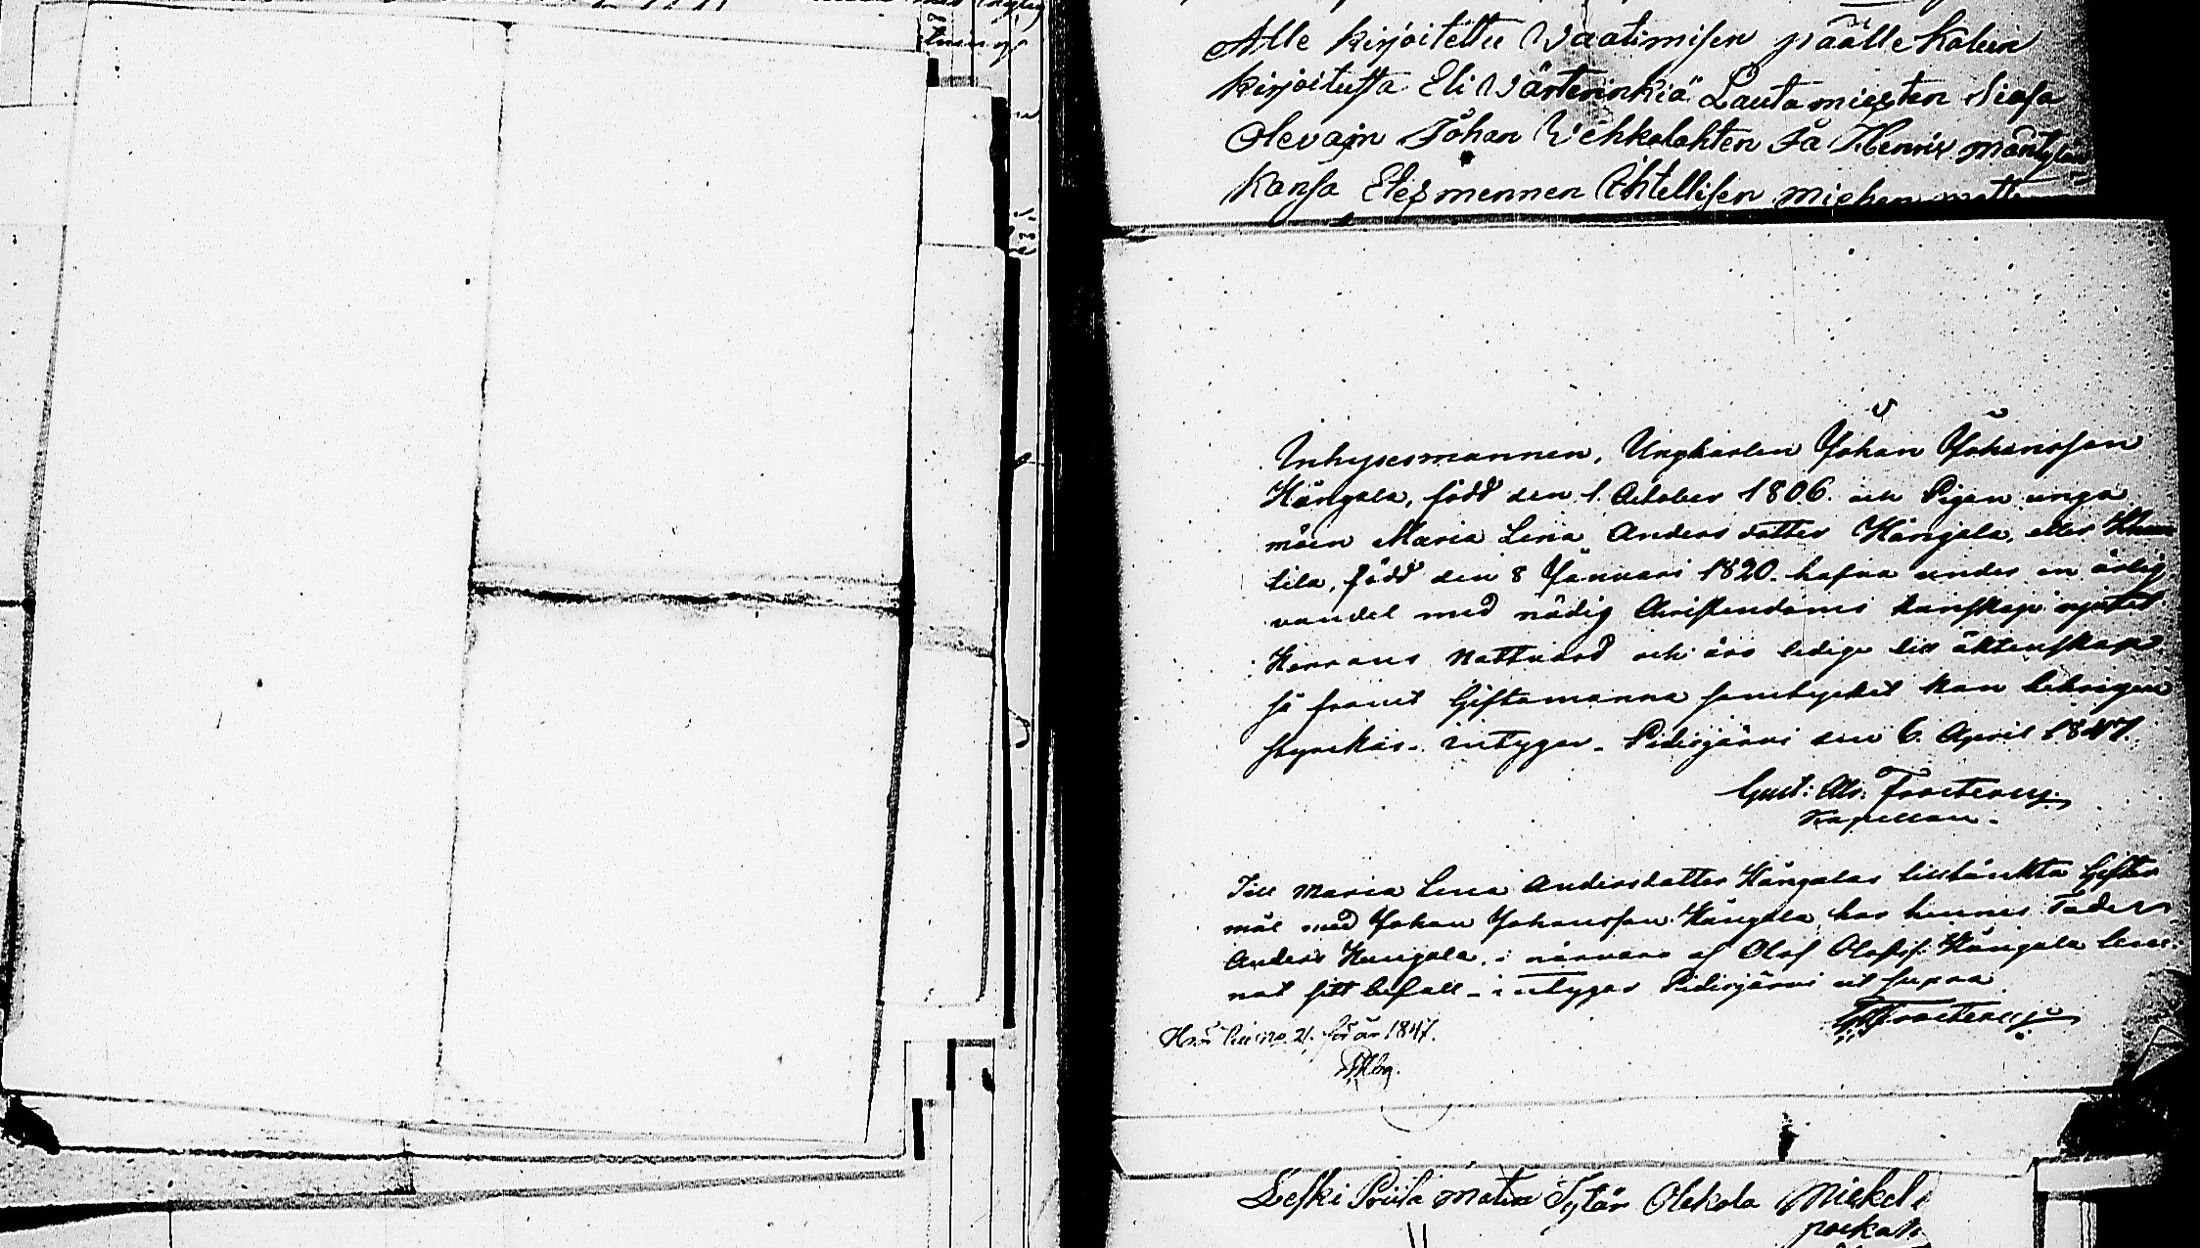 Alle kirjoitettu Waatimisen päälle Kolein
kirjoitussa Eli Wärterinkiä Lautamiesten Siasa
Olevain Johan Vehkalahten Ja Henrix mäntylän
kansa Etes mennen Ahtellisen miehen matt
Inhysesmannen, Ungkarlen Johan Johansson
Kångala, född den 1. October 1806. och Pigan unga
möen Maria Lena Anders dotter Kångala, eller
tila, född den 8 Januari 1820. hafva under en ärlig
vandel med nödig Christendoms kunskap njutit
Herrans Nattvard och äro ledige till äktenskap
så framt Giftomanna samtycket kan behörigen
styrkas. intygar. Pidisjärvi den 6. April 1847.
Gust: Alr. Frosterus
Kapellan.
Till Maria Lena Andersdotter Kångalas tilltänkta Gifter
mål med Johan Johansson Kångala, har hennes Fader
Anders Kangala, i närvaro af Olof Olofss: Kångala lem-
nat sitt bifall - intygar Pidisjärvi ut supra.
Frosterus
No 21. för år 1847.
Leski Priita matin Tytär Olekola Mickel
poikat